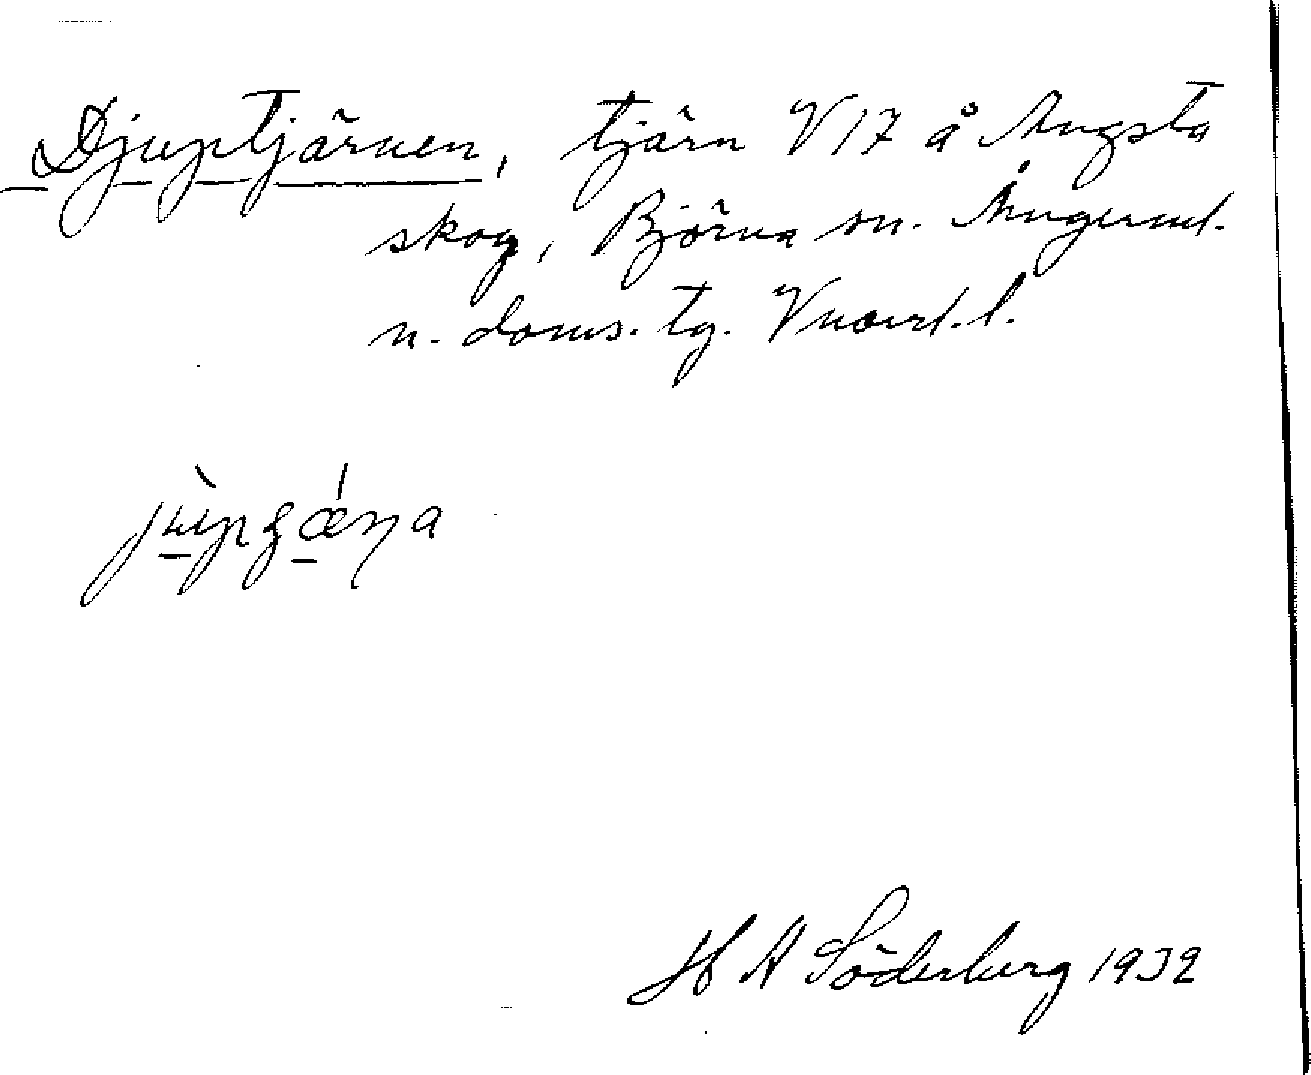 Djuptjärnen, tjärn V 17 å Ångsta
skog, Björna sn. Ångerml.
n. doms. tg. Vnorrl. l.
H A Söderberg 1932